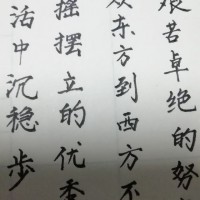 艰苦卓绝的努
从东方到西方不
摇摆立的优秀
活中沉稳步